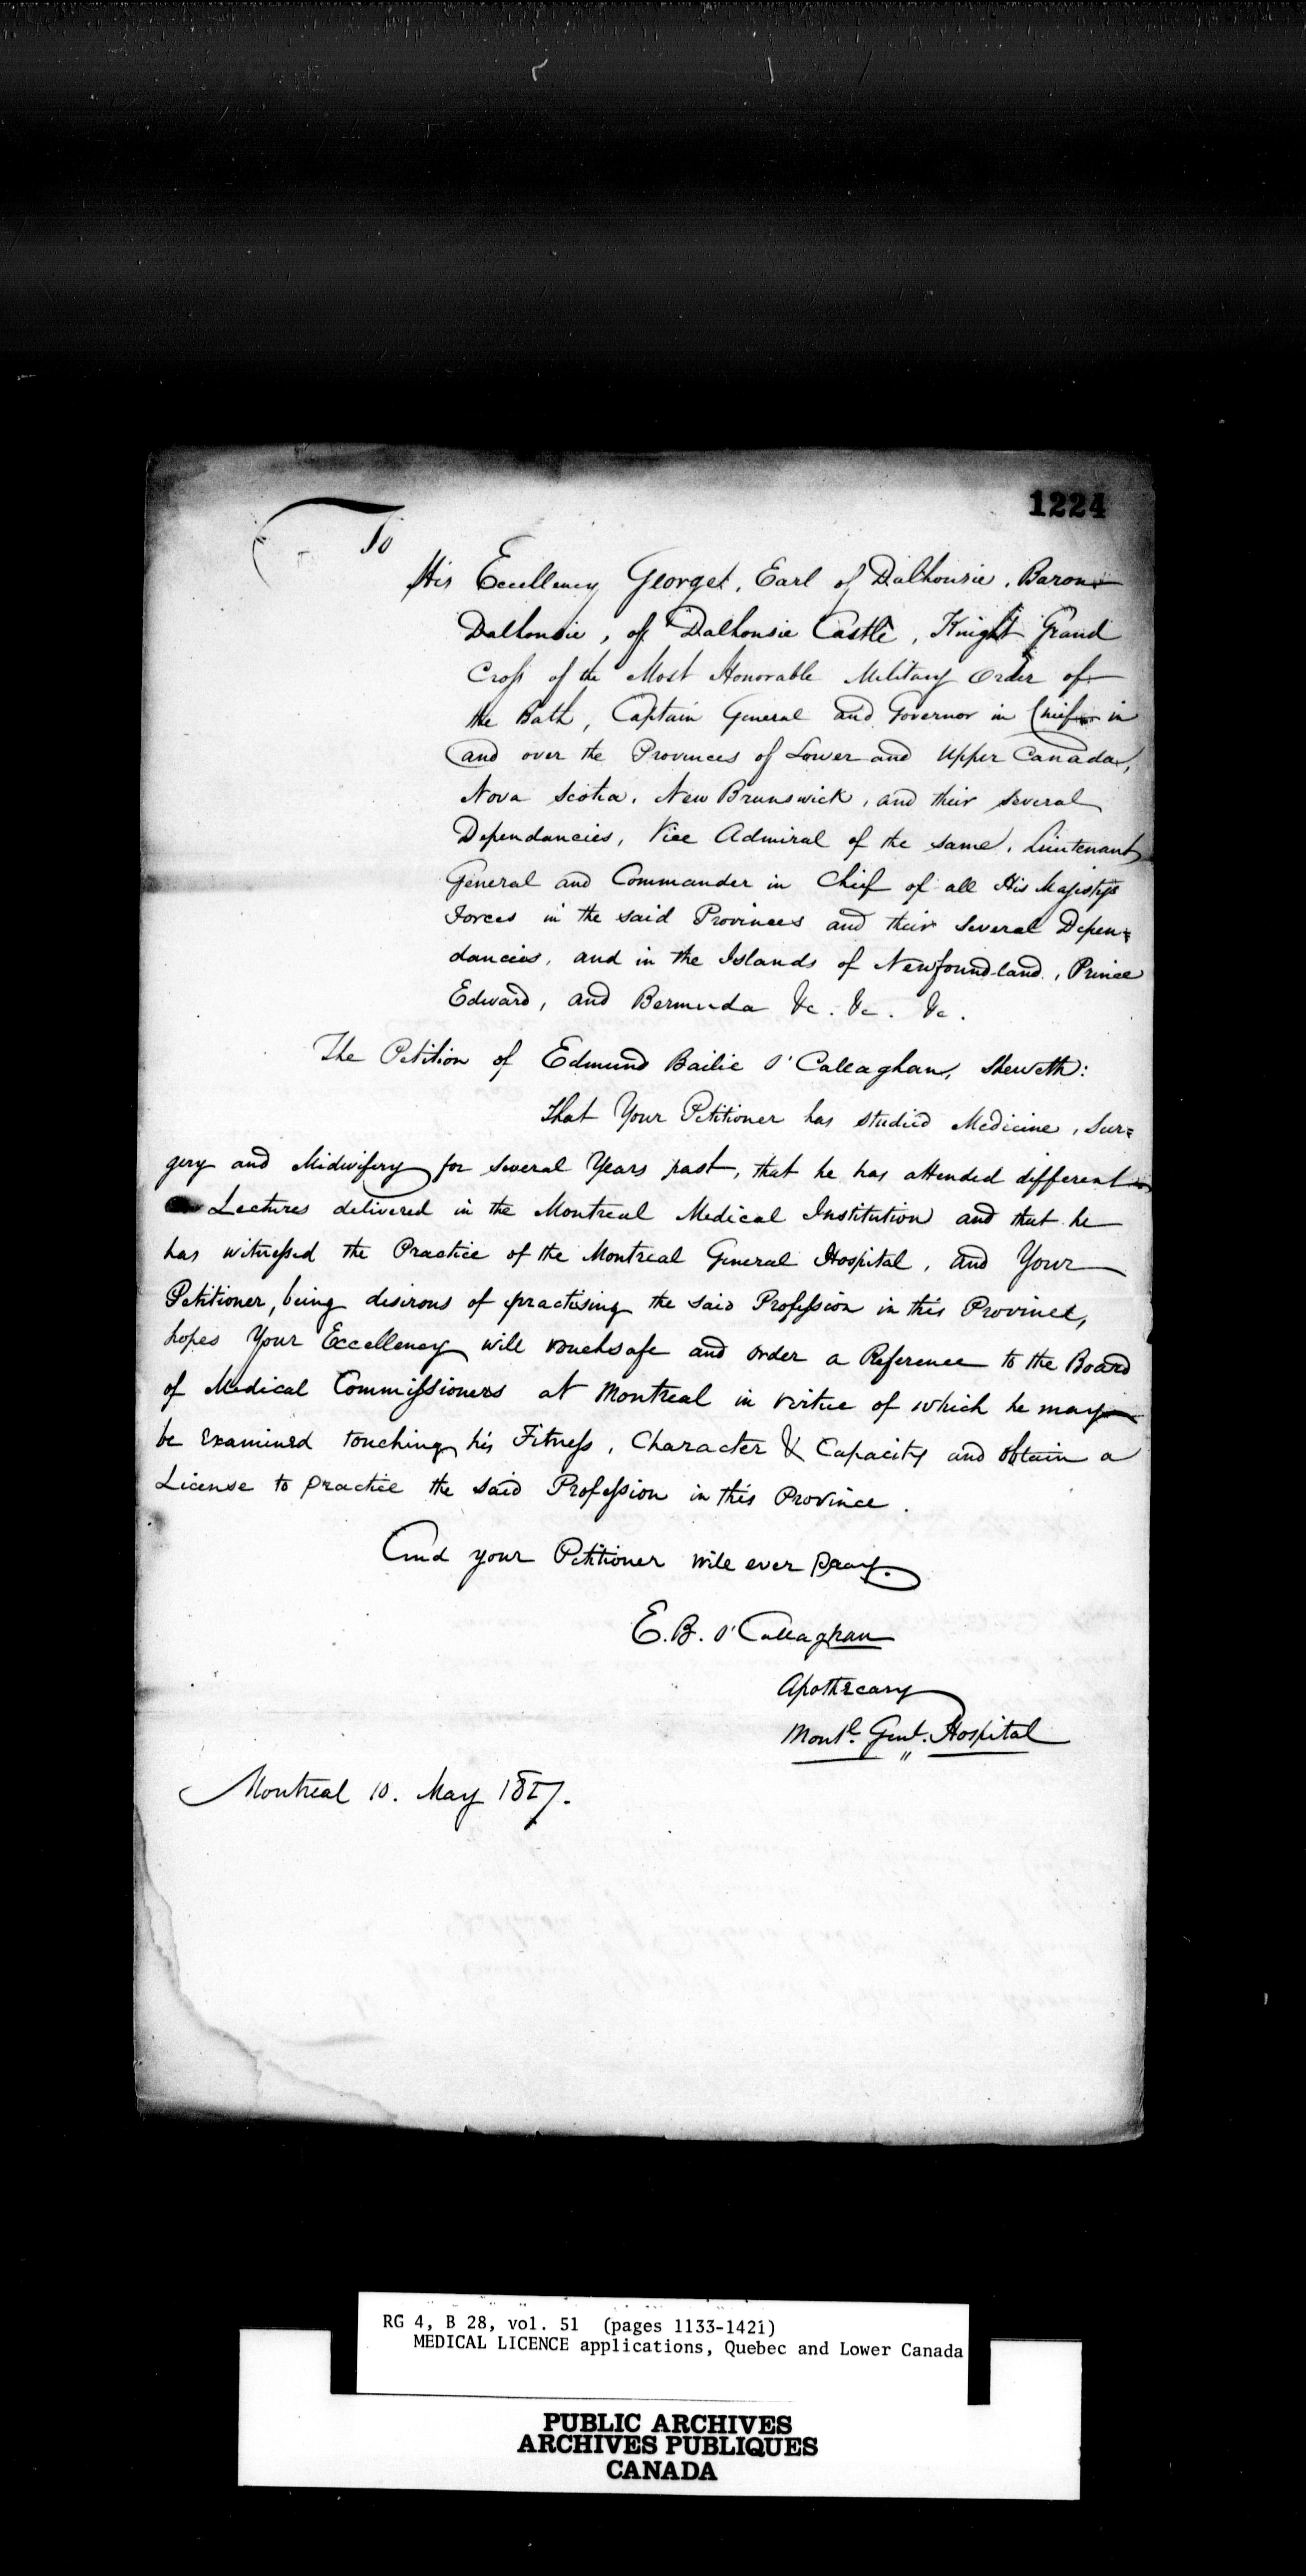 1224
To
His Excellency George, Earl of Dalhousie, Baron
Dalhousie, of Dalhousie Castle, Knight Grand
Cross of the Most Honorable Military Order of
the Bath, Captain General and Governor in Chief in
and over the Provinces of Lower and Upper Canada,
Nova Scotia, New Brunswick, and their several
Dependancies, Vice Admiral of the same, Lieutenant
General and Commander in Chief of all His Majestys
Forces in the said Provinces and their several Depen=
dancies, and in the Islands of Newfoundland, Prince
Edward, and Bermuda &c. &c. &c.
The Petition of Edmund Bailie O'Callaghan, sheweth:
That Your Petitioner has studied Medicine, Sur=
gery and Midwifery for several Years past, that he has attended different
Lectures delivered in the Montreal Medical Institution and that he
has witnessed the Practice of the Montreal General Hospital, and Your
Petitioner, being desirous of practising the said Profession in this Province,
hopes Your Excellency will vouchsafe and order a Reference to the Board
of Medical Commissioners at Montreal in virtue of which he may
be examined touching his Fitness, Character & Capacity and obtain a
License to practice the said Profession in this Province.
And your Petitioner will ever pray.
E.B. O'Callaghan
Apothecary
Montl. Genl. Hospital
Montreal 10. May 1827.
RG 4, B 28, vol. 51 (pages 1133-1421)
MEDICAL LICENCE applications, Quebec and Lower Canada
PUBLIC ARCHIVES
ARCHIVES PUBLIQUES
CANADA